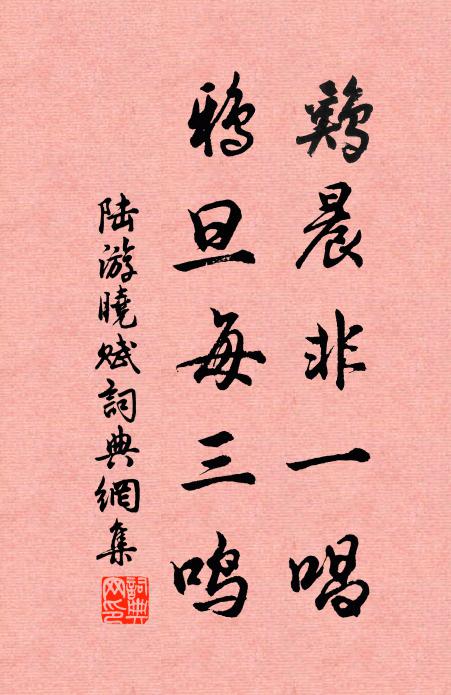 鷄晨非一唱
鴉旦每三鳴
陸游曉賦詞典網集
詞典網印